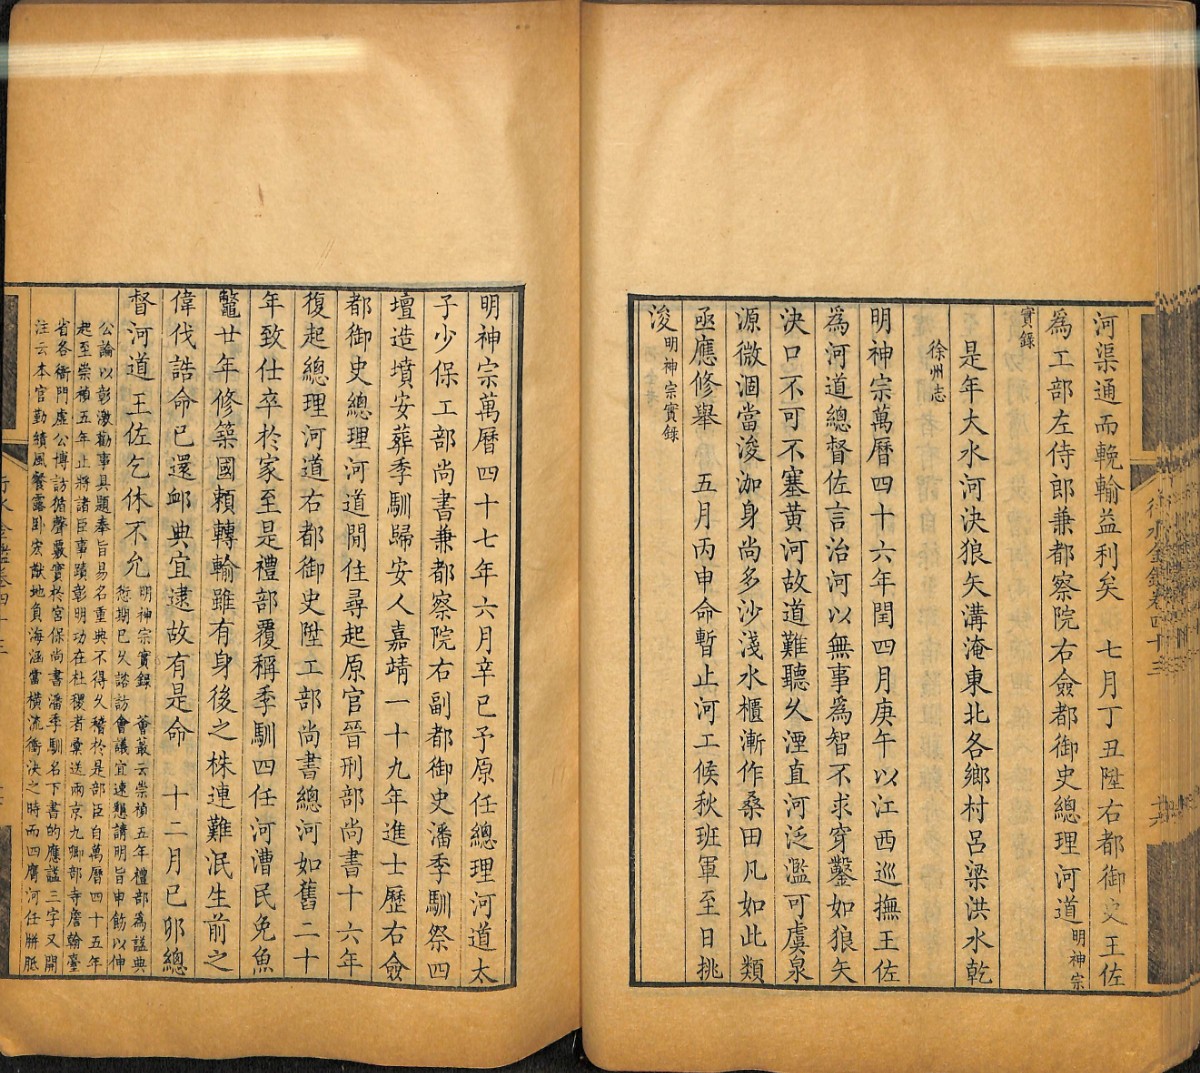 河渠通而輓輸益利矣　七月丁丑陞右都御史王佐
爲工部左侍郎兼都察院右僉都御史總理河道明神宗
實錄
是年大水河決狼矢溝淹東北各鄉村呂梁洪水乾
徐州志
明神宗萬曆四十六年閏四月庚午以江西巡撫王佐
爲河道總督佐言治河以無事爲智不求穿鑿如狼矢
決口不可不塞黃河故道難聽久湮直河泛濫可虞泉
源微涸當浚泇身尚多沙淺水櫃漸作桑田凡如此類
亟應修舉　五月丙申命暫止河工候秋班軍至日挑
浚明神宗實錄
行水金鑑卷四十三
明神宗萬曆四十七年六月辛巳予原任總理河道太
子少保工部尚書兼都察院右副都御史潘季馴祭四
壇造墳安葬季馴歸安人嘉靖一十九年進士歷右僉
都御史總理河道閒住尋起原官晉刑部尚書十六年
復起總理河道右都御史陞工部尚書總河如舊二十
年致仕卒於家至是禮部覆稱季馴四任河漕民免魚
鼈廿年修築國賴轉輸雖有身後之株連難泯生前之
偉伐誥命已還卹典宜逮故有是命　十二月己卯總
督河道王佐乞休不允明神宗實錄　薈蕞云崇禎五年禮部爲謚典
愆期已久諮訪會議宜速懇請明旨申飭以伸
公論以彰激勸事具題奉旨易名重典不得久稽於是部臣自萬曆四十五年
起至崇禎五年止將諸臣事蹟彰明功在社稷者彙送兩京九卿部寺詹翰臺
省各衙門虛公博訪循聲覈實於宮保尚書潘季馴名下書的應謚三字又開
注云本官勤績風餐露卧宏猷地負海涵當橫流衝決之時而四膺河任胼胝